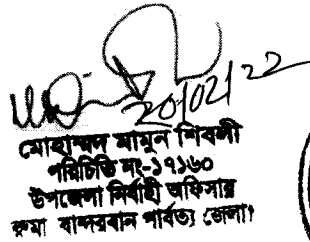 20/02/22
মোহাম্মদ মামুন শিবলী
পরিচিতি নং-১৭১৬০
উপজেলা নির্বাহী অফিসার
রুমা বান্দরবান পার্বত্য জেলা।